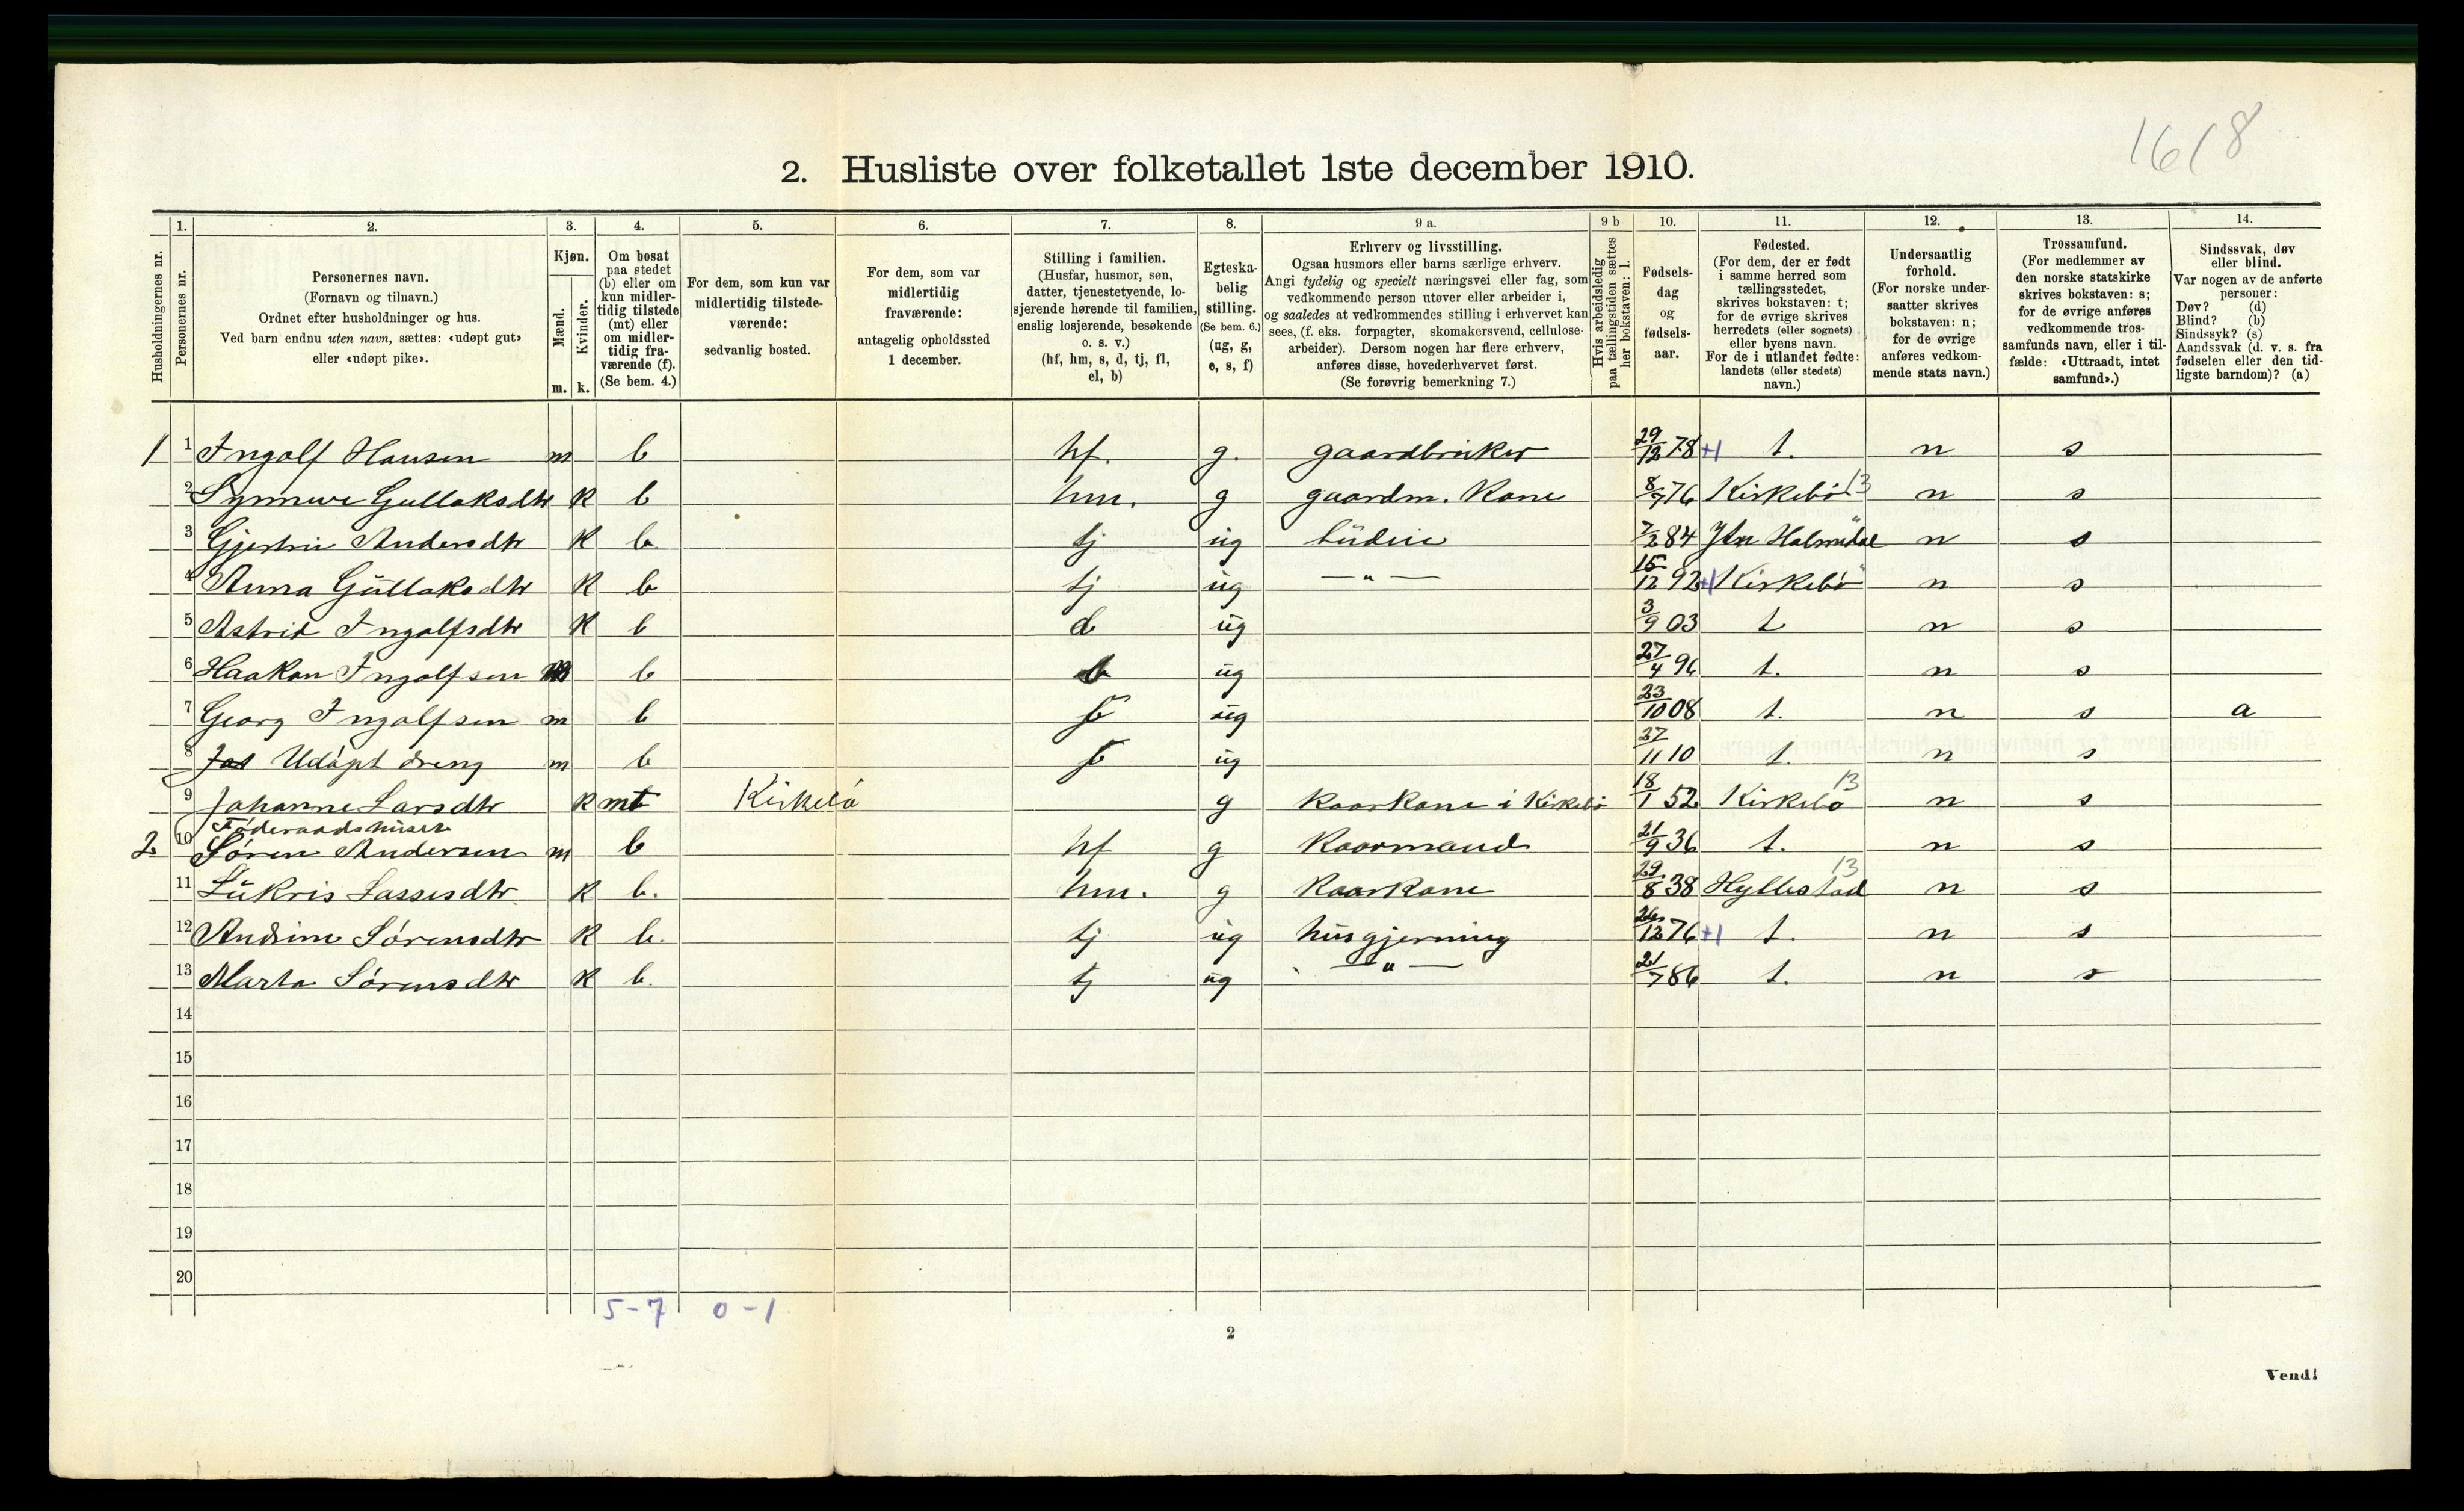 1618
2. Husliste over folketallet 1ste december 1910.
Husholdningernes nr.
1.
Personernes nr.
2.
Personernes navn.
(Fornavn og tilnavn.)
Ordnet efter husholdninger og hus.
Ved barn endnu uten navn, sættes: «udøpt gut»
eller «udøpt pike».
3.
Kjøn.
Mænd.
Kvinder.
m. k.
4.
Om bosat
paa stedet
(b) eller om
kun midler-
tidig tilstede
(mt) eller
om midler-
tidig fra-
værende (f).
(Se bem. 4.)
5.
For dem, som kun var
midlertidig tilstede-
værende:
sedvanlig bosted.
6.
For dem, som var
midlertidig
fraværende:
antagelig opholdssted
1 december.
7.
Stilling i familien.
(Husfar, husmor, søn,
datter, tjenestetyende, lo-
sjerende hørende til familien,
enslig losjerende, besøkende
o. s. v.)
(hf, hm, s, d, tj, fl,
el, b)
8.
Egteska-
belig
stilling.
(Se bem. 6.)
(ug, g,
e, s, f)
9 a.
Erhverv og livsstilling.
Ogsaa husmors eller barns særlige erhverv.
Angi tydelig og specielt næringsvei eller fag, som
vedkommende person utøver eller arbeider i,
og saaledes at vedkommendes stilling i erhvervet kan
sees, (f. eks. forpagter, skomakersvend, cellulose-
arbeider). Dersom nogen har flere erhverv,
anføres disse, hovederhvervet først.
(Se forøvrig bemerkning 7.)
9 b
Hvis arbeidsledig
paa tællingstiden sættes
her bokstaven: l.
10.
Fødsels-
dag
og
fødsels-
aar.
11.
Fødested.
(For dem, der er født
i samme herred som
tællingsstedet,
skrives bokstaven: t;
for de øvrige skrives
herredets (eller sognets)
eller byens navn.
For de i utlandet fødte:
landets (eller stedets)
navn.)
12.
Undersaatlig
forhold.
(For norske under-
saatter skrives
bokstaven: n;
for de øvrige
anføres vedkom-
mende stats navn.)
13.
Trossamfund.
(For medlemmer av
den norske statskirke
skrives bokstaven: s;
for de øvrige anføres
vedkommende tros-
samfunds navn, eller i til-
fælde: «Uttraadt, intet
samfund».)
14.
Sindssvak, døv
eller blind.
Var nogen av de anførte
personer:
Døv? (d)
Blind? (b)
Sindssyk? (s)
Aandssvak (d. v. s. fra
fødselen eller den tid-
ligste barndom)? (a)
1 1 Ingolf Hansen m b hf. g. gaardbruker 29/12 78 +1 t. n s
2 Synneve Gullaksdtr k b hm. g gaardm. kone 8/7 76 Kirkebø 13 n s
3 Gjertrü Andersdtr k b tj ug büdeie 7/2 84 Ytre Holmedal " n s
4 Anna Güllaksdtr k b tj ug — " — 15/12 92 +1 Kirkebø " n s
5 Astrid Ingolfsdtr k b d ug 3/9 03 t n s
6 Haakon Ingolfsen m b ug 27/4 96 t. n s
7 Georg Ingolfsen m b s ug 23/10 08 t. n s a
8 Udøpt dreng m b s ug 27/11 10 t. n s
9 Johanne Larsdtr k mt Kirkebø g kaarkone i Kirkebø 18/1 52 Kirkebø 13 n s
Føderaadshuset
2 10 Søren Andersen m b hf g Kaarmand 21/9 36 t. n s
11 Lükris Lassesdtr k b. hm. g Kaarkone 29/8 38 Hyllestad 13 n s
12 Andrine Sørensdtr k b. tj ug husgjerning 26/12 76 +1 t. n s
13 Marta Sørensdtr k b. tj ug — " — 21/7 86 t. n s
14
15
16
17
18
19
20
5-7 0-1
2
Vend!